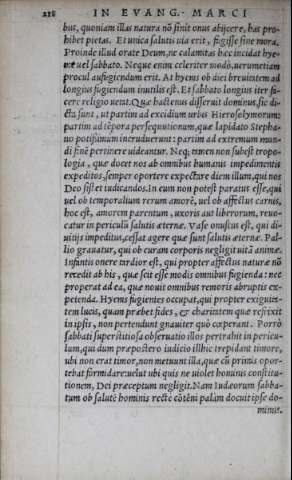 218 IN EVANG. MARCI
bus, quoniam illas natura nõ sinit onus abijcere, has pro-
hibet pietas. Et unica salutis uia erit, fugisse sine mora.
Proinde illud orate Deum, ne calamitas hæc incidat hye-
me uel sabbato. Neque enim celeriter modò, uerumetiam
procul aufugiendum erit. At hyems ob diei breuitatem ad
longius fugiendum inutilis est. Et sabbato longius iter fa-
cere religio uetat. Quæ hactenus disseruit dominus, sic di-
cta sunt, ut partim ad excidium urbis Hierosolymorum:
partim ad tẽpora persequutionum, quæ lapidato Stepha-
no potissimum incruduerunt: partim ad extremum mun-
di finẽ pertinere uideantur. Neq; tamen non subest tropo-
logia, quæ docet nos ab omnibus humanis impedimentis
expeditos, semper oportere expectare diem illum, qui nos
Deo sistet iudicandos. In eum non potest paratus esse, qui
uel ob temporalium rerum amorẽ, uel ob affectus carnis,
hoc est, amorem parentum, uxoris aut liberorum, reuo-
catur in periculũ salutis æternæ. Vase onustus est, qui di-
uitijs impeditus, cessat agere quæ sunt salutis æternæ. Pal-
lio grauatur, qui ob curam corporis negligit uitã animæ.
Infantis onere tardior est, qui propter affectus naturæ nõ
recedit ab his, quæ scit esse modis omnibus fugienda: nec
properat ad ea, quæ nouit omnibus remoris abruptis ex-
petenda. Hyems fugientes occupat, qui propter exiguita-
tem lucis, quam præbet fides, & charitatem quæ refrixit
in ipsis, non pertendunt gnauiter quò cœperant. Porrò
sabbati superstitiosa obseruatio illos pertrahit in pericu-
lum, qui dum præpostero iudicio illhic trepidant timore,
ubi non erat timor, non metuunt illa, quæ cũ primis opor-
tebat formidare: uelut ubi quis ne uiolet hominis constitu-
tionem, Dei præceptum negligit. Nam Iudæorum sabba-
tum ob salutẽ hominis rectè cõtẽni palàm docuit ipse do-
minus.